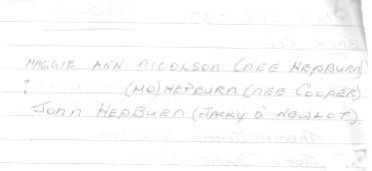 MAGGIE ANN NICOLSON (NEE HEPBURN)
? (MO) HEPBURN (NEE COOPER)
JOHN HEPBURN (JACKY O' NEWLOT).